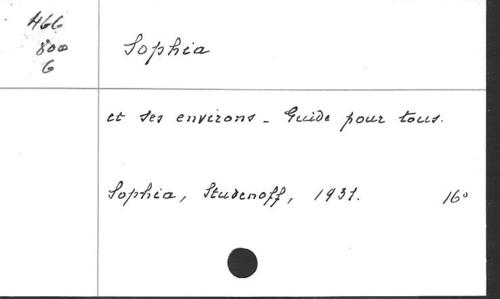 466
800
6
Sophia
et ses environs - Guide pour tous.
Sophia, Studenoff, 1931. 16°